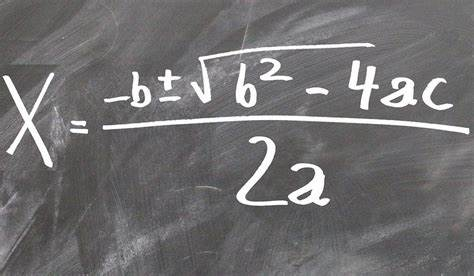 X = -b ± √b² - 4ac
2a